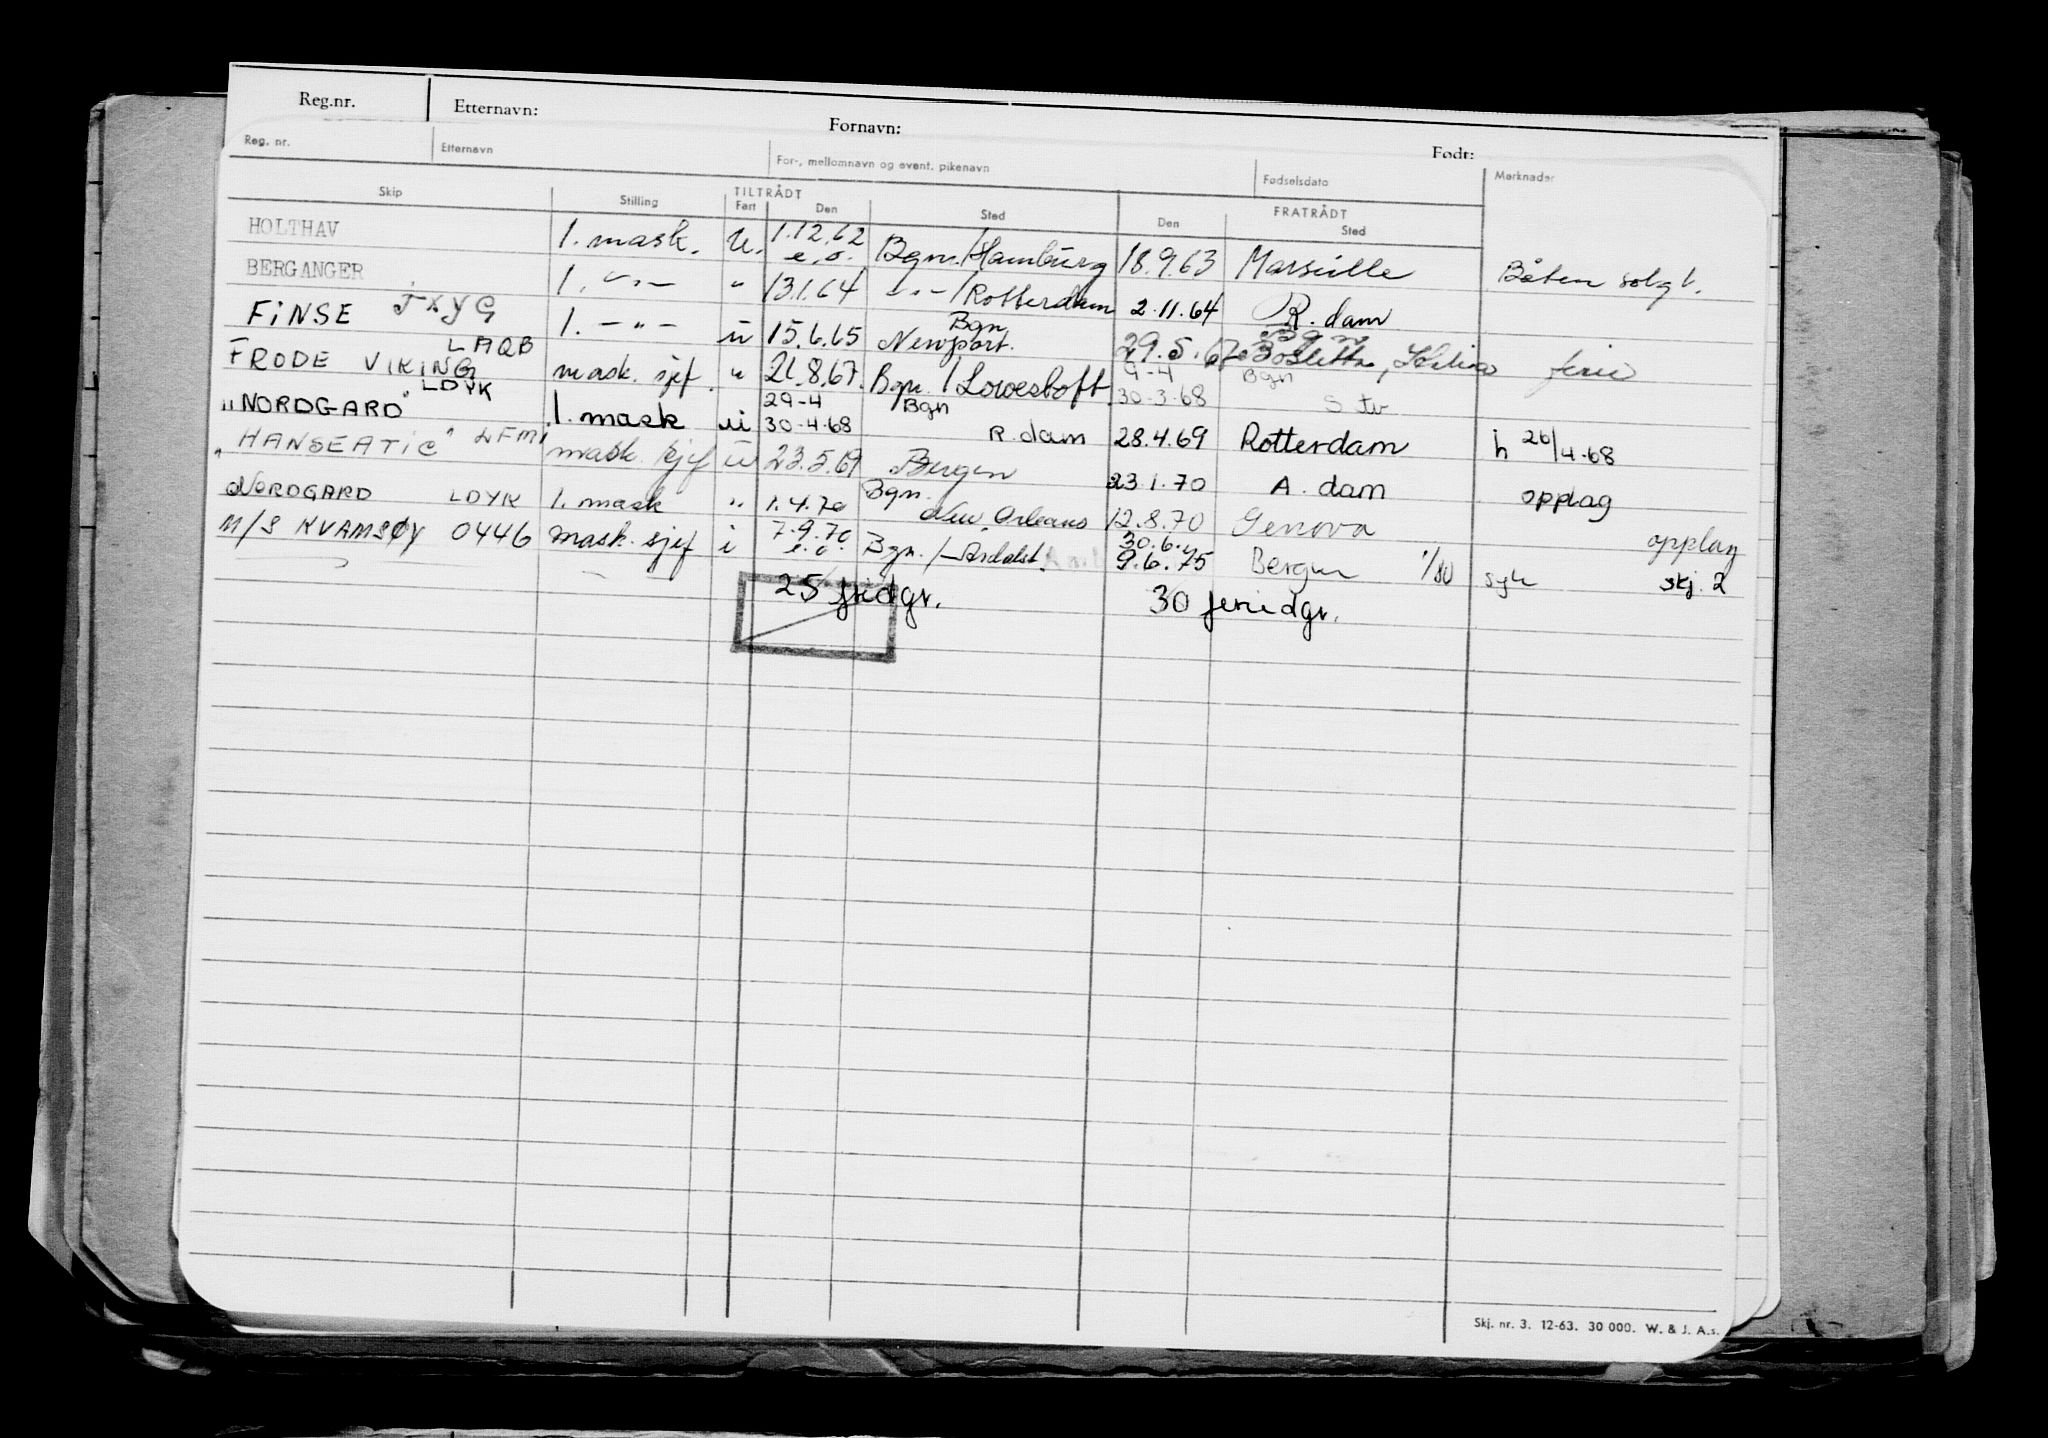 Reg.nr. Etternavn: Fornavn: Født:
Reg. nr. Etternavn For-, mellomnavn og event. pikenavn Fødselsdato Merknader
Skip Stilling TILTRÅDT FRATRÅDT
Fart Den Sted Den Sted
HOLTHAV 1. mask. u. 1.12.62 e.o. Bgn./Hamburg 18.9.63 Marseille Båten solgt.
BERGANGER 1. -"- " 13.1.64 -"-/Rotterdam 2.11.64 R.dam
FINSE JXYG 1. -"- u 15.6.65 Bgn Newport. 29.5.67 Bgn ferie
FRODE VIKING LAQB mask. sjef. " 21.8.67. Bgn./Lowestoft 9-4 30-3-68 Bgn
"NORDGARD" LDYK 1. mask u 29-4 30-4-68 Bgn R.dam 28.4.69 Rotterdam h 26/4-68
"HANSEATIC" LFM mask. sjef u 23.5.69 Bergen 23.1.70 A.dam opplag
NORDGARD LDYK 1. mask " 1.4.70 Bgn. New Orleans 12.8.70 Genova opplag
M/S KVAMSØY 0446 mask. sjef i 7.9.70 e.o. Bgn./Årdalst. 30.6. 9.6.75 Bergen 1/80 syk skj. 2
25 fridgr. 30 feriedgr.
Skj. nr. 3. 12-63. 30 000. W. & J. A.s.